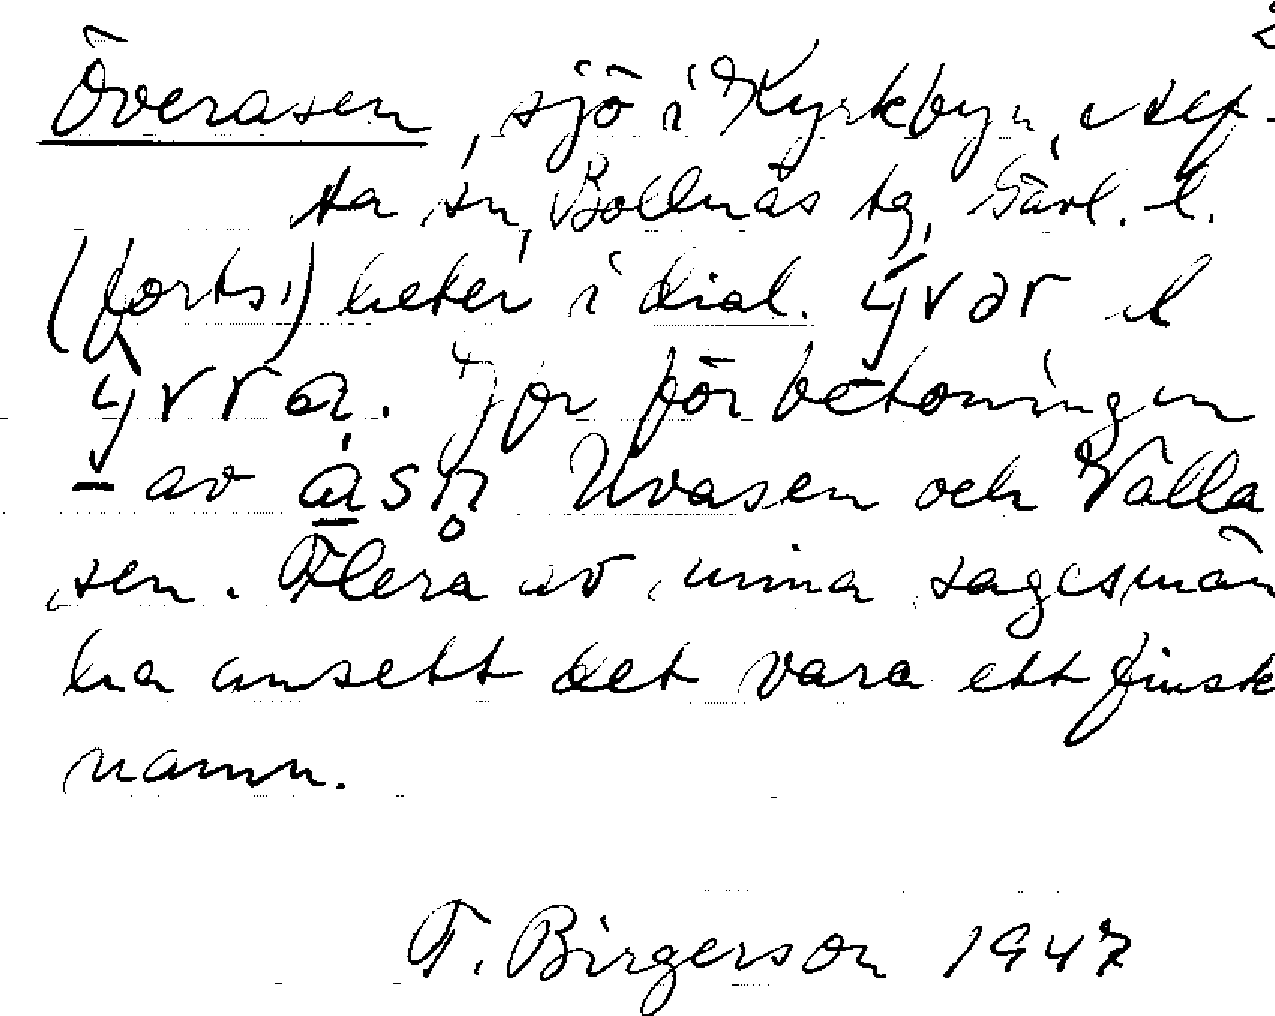 Överasen, sjö i Kyrkbyn, Alf-
ta sn, Bollnäs tg, Gävl. l.
(forts.) heter i dial. ȳvər l
ȳvra. Jfr för betoningen
– av a̱sn̥ Uvasen och Valla
sen. Flera av mina sagesmän
ha ansett det vara ett finsk
namn.
F. Birgerson 1947